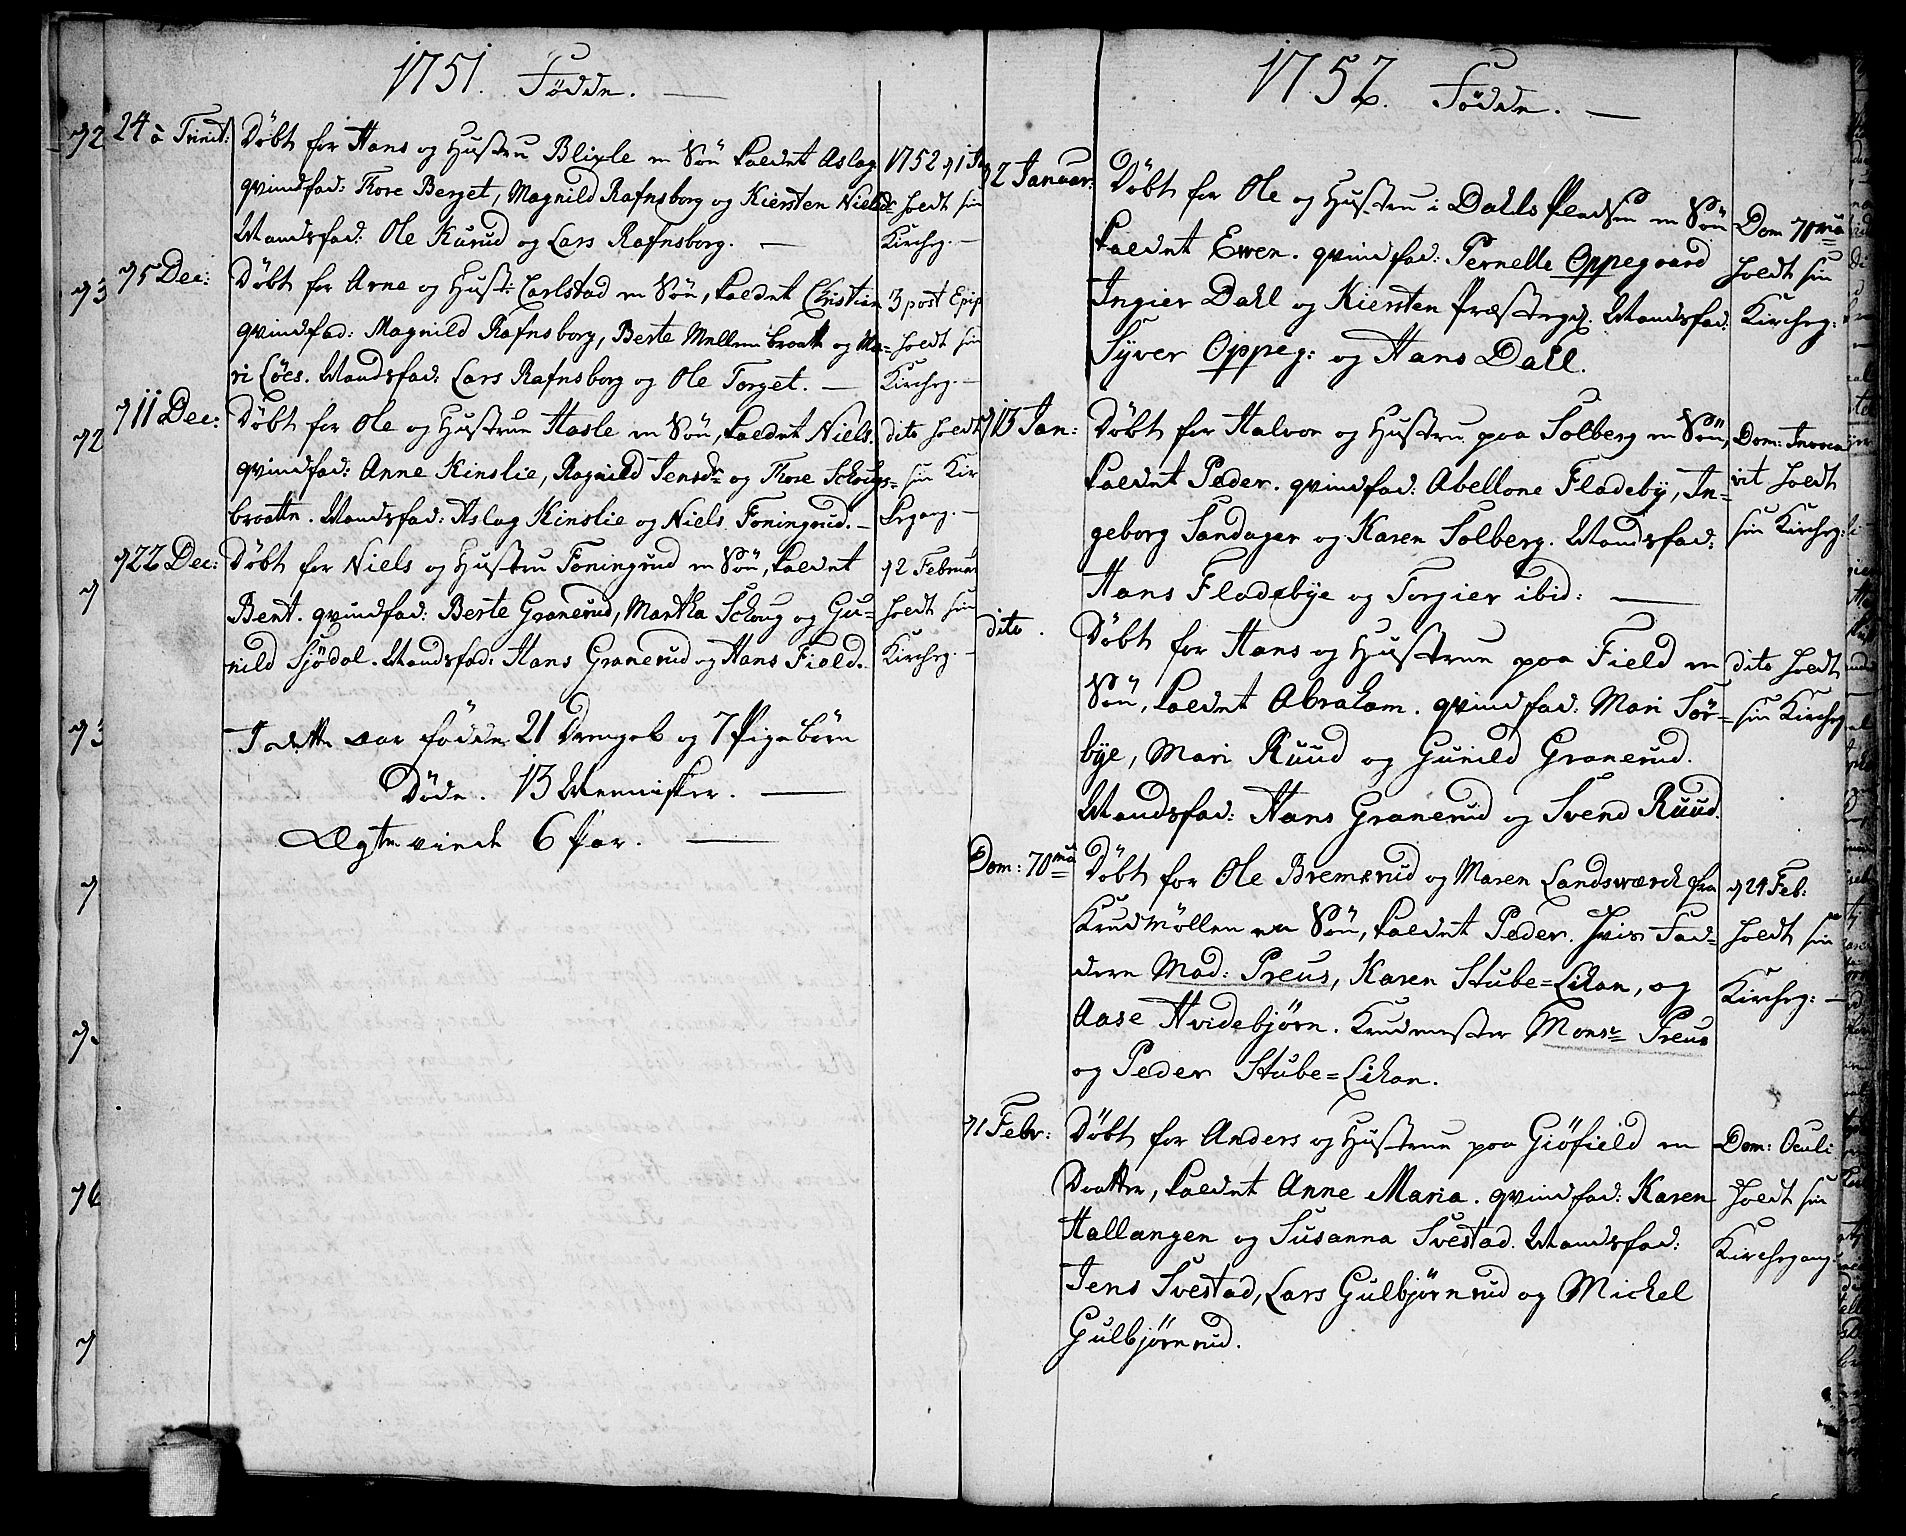 1751. Födde.
24 à Trinit: Döbt for Hans og Hustru Blixle en Sön kaldet Aslag
qvindfad: Thore Berget, Magnild Rafnsborg og Kiersten Nielsdr
Mandsfad: Ole Kurud og Lars Rafnsborg.
1752 holdt sin
Kircheg.
5 Dec: Döbt for Arne og Hust: Carlstad en Sön, kaldet Christian
qvindfad: Magnild Rafnsborg, Berte Mellembraatt og Ma-
ri Löes. Mandsfad: Lars Rafnsborg og Ole Torget.
3 post Epip
holdt sin
Kircheg.
11 Dec: Döbt for Ole og Hustrue Hasle en Sön, kaldet Niels.
qvindfad: Anne Kinslie, Ragnild Jensdr og Thore Schougs-
braatten. Mandsfad: Aslag Kinslie og Niels Foningrud.
dito holdt
sin Kir
kegang.
22 Dec: Döbt for Niels og Hustru Foningrud en Sön, kaldet
Bent. qvindfad: Berte Granerud, Martha Schoug og Gu-
nild Sjödal. Mandsfad: Hans Granerud og Hans Field.
2 Februar
holdt sin
Kircheg.
I dette aar födde 21 Drengeb og 7 Pigebörn
Döde. 13 Mennisker.
Ægteviede 6 Par.
1752. Födde.
2 Januar: Döbt for Ole og Hustru i Dahls Pladsen en Sön
kaldet Ewen. qvindfad: Pernelle Oppegaard
Ingier Dahl og Kiersten Præstegd. Mandsfad:
Syver Oppeg: og Hans Dahl.
Dom 70mâ
holdt sin
Kircheg:
13 Jan: Döbt for Halvor og Hustru paa Solberg en Sön,
kaldet Peder. qvindfad: Abellone Fladeby, In-
geborg Sandager og Karen Solberg. Mandsfad:
Hans Fladebye og Torgier ibid:
Dom: Invoca
vit holdt
sin Kircheg:
dito. Döbt for Hans og Hustrue paa Field en
Sön, kaldet Abraham. qvindfad: Mari Sör-
bye, Mari Ruud og Gunild Granerud.
Mandsfad: Hans Granerud og Svend Ruud.
dito holdt
sin Kircheg
Dom: 70mâ Döbt for Ole Bremsrud og Maren Landsværck fra
Krudmöllen en Sön, kaldet Peder. Hvis Fad-
dere Mad: Preus, Karen Stube=Lihan, og
Aase Hvidebjörn. Krudmester Monsr Preus
og Peder Stube=Lihan.
24 Feb:
holdt sin
Kircheg:
1 Febr: Döbt for Anders og Hustrue paa Giöfield en
Daatter, kaldet Anne Maria. qvindfad: Karen
Hallangen og Susanna Svestad. Mandsfad:
Jens Svestad, Lars Gulbjörnrud og Michel
Gulbjörnrud.
Dom: Oculi
holdt sin
Kirchegang.